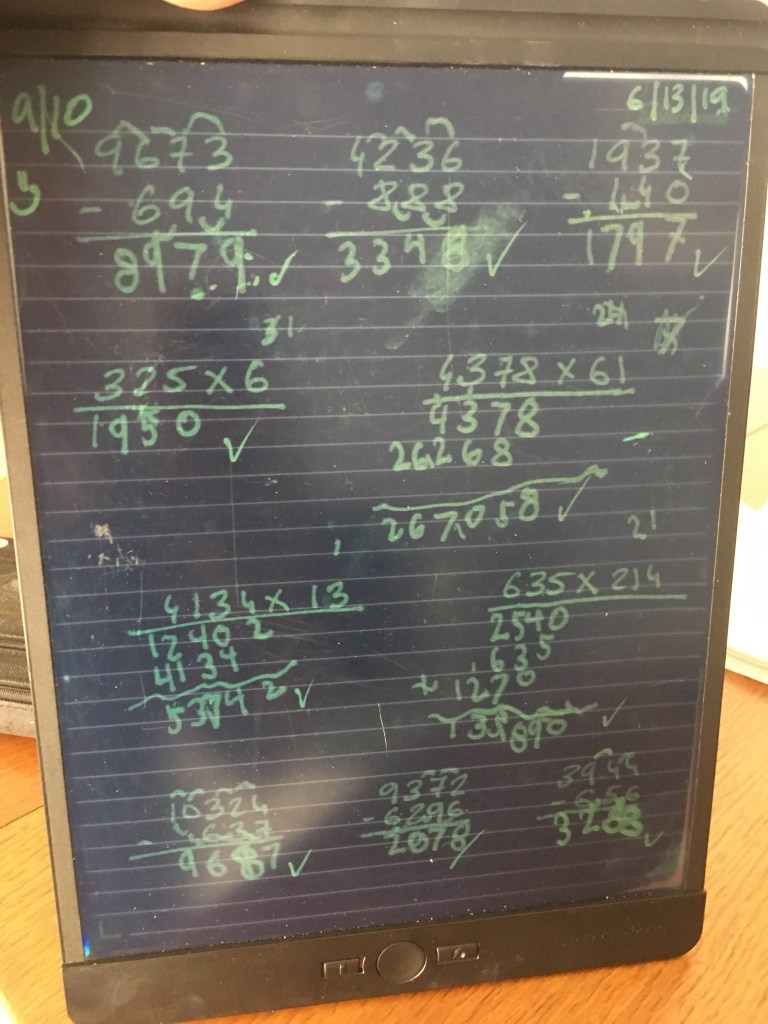 9/10 6/13/19
9673 4236 1937
- 694 - 888 - 140
8979 ✓ 3348 ✓ 1797 ✓
31
325 × 6 4378 × 61
1950 ✓ 4378
26268
267,058 ✓
21
4134 × 13 635 × 214
12402 2540
4134 635
53742 ✓ + 1270
135890 ✓
10324 9372 3944
- 637 - 6296 - 656
9687 ✓ 2078 ✓ 3288 ✓